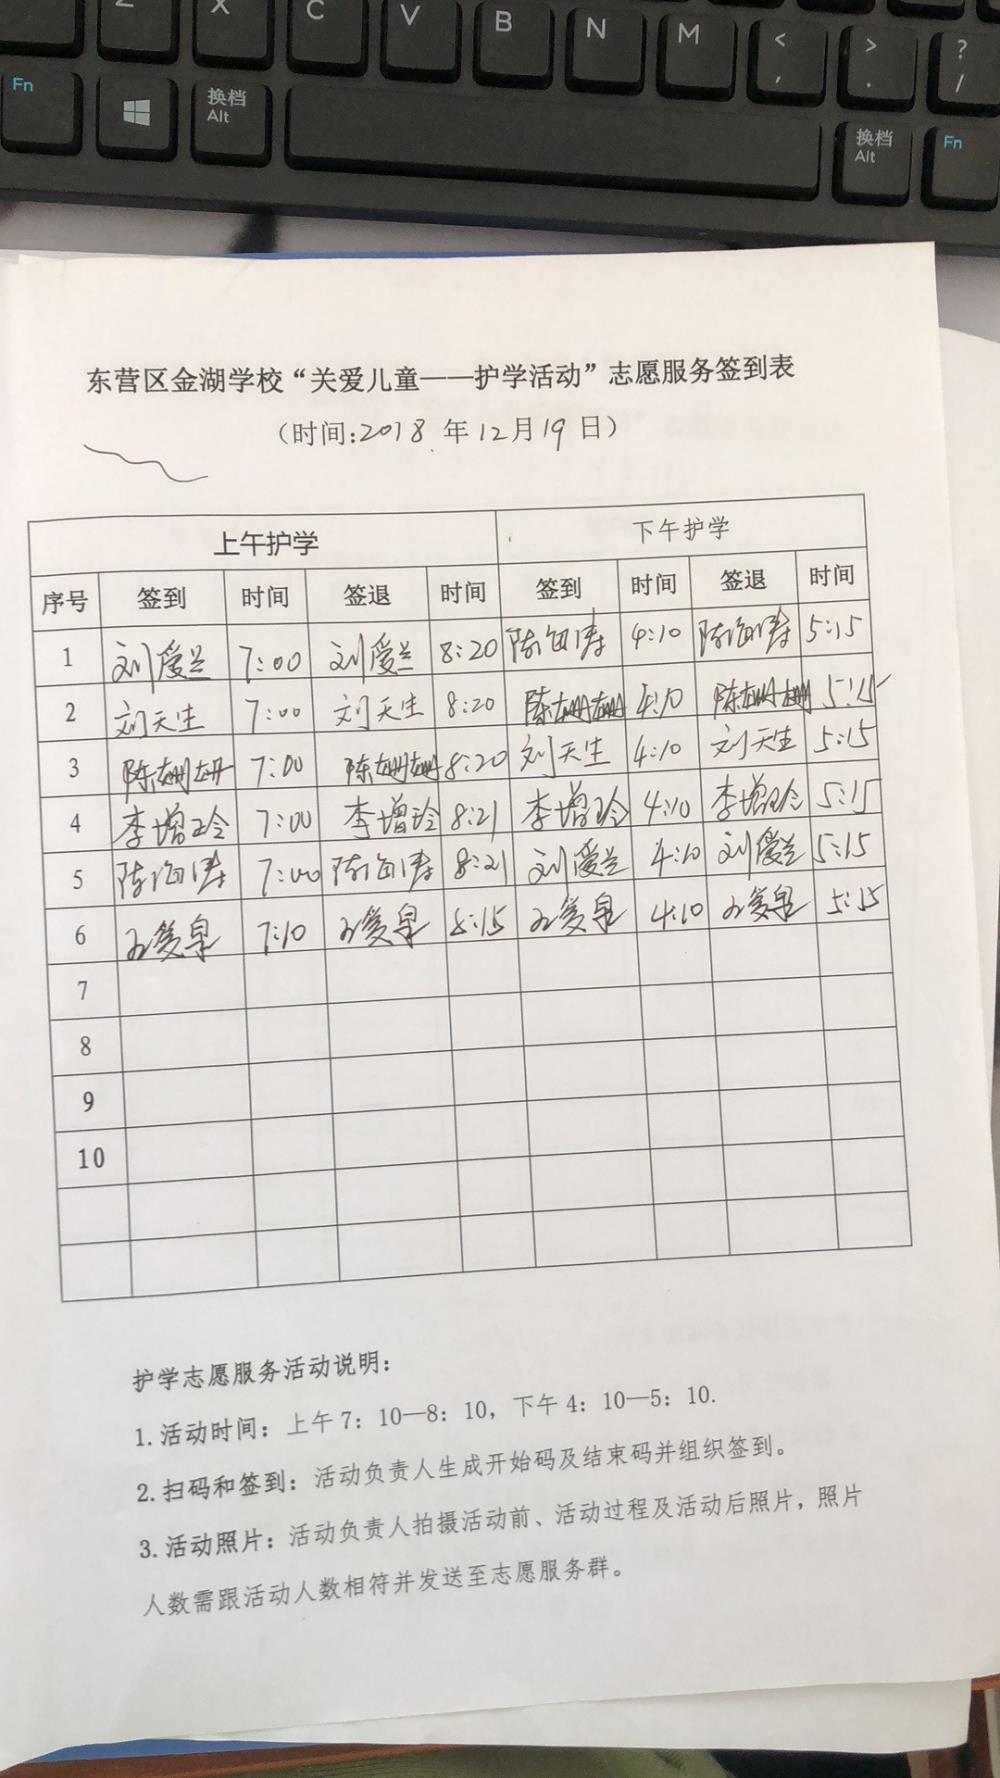 Z X C V B N M < , > . ? /
Fn 换档 Alt 换档 Alt Fn
东营区金湖学校“关爱儿童——护学活动”志愿服务签到表
（时间:2018 年 12月 19 日）
上午护学 下午护学
序号 签到 时间 签退 时间 签到 时间 签退 时间
1 刘爱兰 7:00 刘爱兰 8:20 陈海涛 4:10 陈海涛 5:15
2 刘天生 7:00 刘天生 8:20 陈姗姗 4:10 陈姗姗 5:15
3 陈姗姗 7:00 陈姗姗 8:20 刘天生 4:10 刘天生 5:15
4 李增玲 7:00 李增玲 8:21 李增玲 4:10 李增玲 5:15
5 陈海涛 7:00 陈海涛 8:21 刘爱兰 4:10 刘爱兰 5:15
6 7:10 8:15 4:10 5:15
7
8
9
10
护学志愿服务活动说明：
1.活动时间：上午7：10—8：10，下午4：10—5：10.
2.扫码和签到：活动负责人生成开始码及结束码并组织签到。
3.活动照片：活动负责人拍摄活动前、活动过程及活动后照片，照片
人数需跟活动人数相符并发送至志愿服务群。